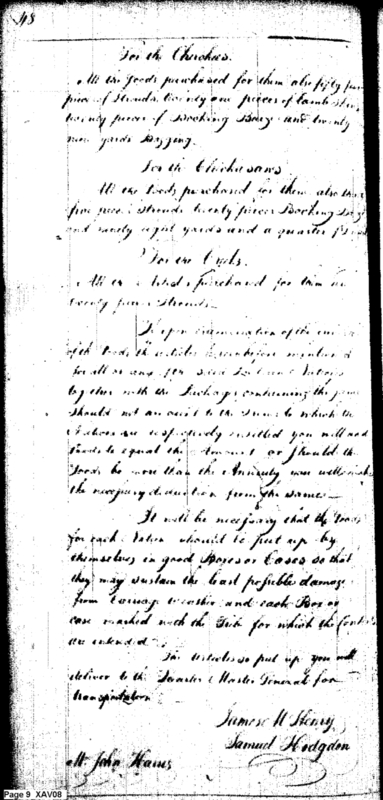 48
For the Cherokees.
All the goods purchased for them also fifty
piece of Strouds twenty one pieces of
twenty pieces of Bocking Baize and twenty
nine yards Bagging.
For the Chickasaws
All the Goods purchased for them also
five pieces Strouds twenty pieces Bocking
and ninety eight yards and a quarter
For the Creeks.
All the purchased for them
twenty Strouds
If upon examination of the
of the Goods the articles herein before mentioned
for all or any of the said Indian Nations
together with the Packages containing the same
should not amount to the Sums to which the
Nations are respectively entitled you will add
Goods to equal the Amount or should the
Goods be more than the Annuity you will make
the necessary deduction from the same—
It will be necessary that the Goods
for each Nation should be put up by
themselves in good Boxes or Cases so that
they may sustain the least possible damage
from Carriage weather and each Box or
case marked with the Tribe for which the
are intended
The Articles so put up you will
deliver to the Quarter Master General for
transportation
James McHenry
Samuel Hodgdon
Mr. John Harris
Page 9 XAV08